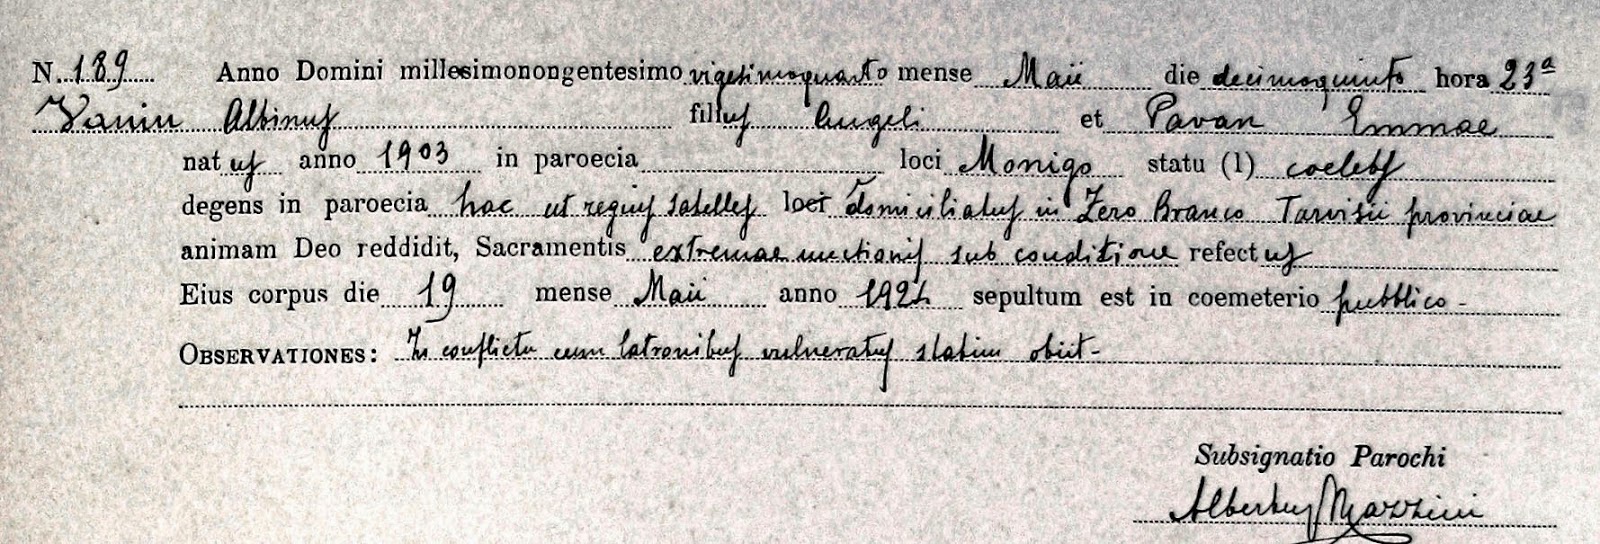 N. 189 Anno Domini millesimonongentesimo vigesimoquarto mense Maii die decimoquinto hora 23ª
Vanin Albinus filius Angeli et Pavan Emmae
natus anno 1903 in paroecia loci Monigo statu (1) coelebs
degens in paroecia hac ut regius satelles loci domiciliatus in Zero Branco Tarvisii provinciae
animam Deo reddidit, Sacramentis extremae unctionis sub conditione refectus
Eius corpus die 19 mense Maii anno 1924 sepultum est in coemeterio pubblico -
OBSERVATIONES: In conflictu cum latronibus vulneratus statim obiit -
Subsignatio Parochi
Albertus Mazzini